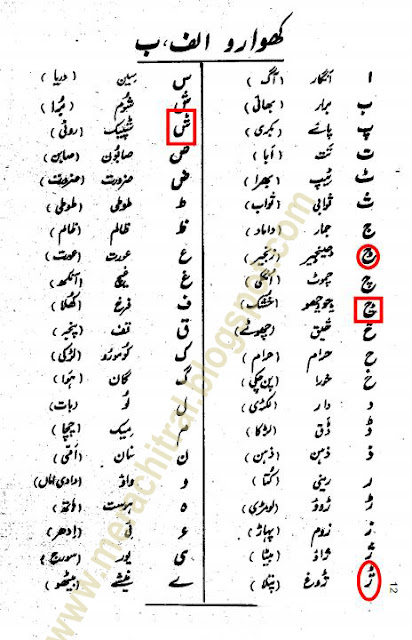 کھوارو الف، ب
ا انگار (آگ)
ب برار (بھائی)
پ پائے (بکری)
ت تت (ابا)
ٹ ٹیپ (بھرا)
ث ثوابی (ثواب)
ج جمار (داماد)
ݮ ݮینݮیر (زنجیر)
چ چموٹ (انگلی)
ݯ ݯوݯھو (خشک)
څ څیق (چھوٹے)
ح حرام (حرام)
خ خورا (پن چکی)
د دار (لکڑی)
ڈ ڈق (لڑکا)
ذ ذہن (ذہن)
ر رینی (کتا)
ڑ (لومڑی)
ز زوم (پہاڑ)
ژ ژاؤ (بیٹا)
ݱ (پتلا)
س سین (دریا)
ش شوم (برا)
ݰ ݰپیک (روٹی)
ص صابون (صابن)
ض ضرورت (ضرورت)
ط طوطی (طوطی)
ظ ظالم (ظالم)
ع عورت (عورت)
غ غیچ (آنکھ)
ف فرغ (کھلا)
ق قف
ک کومورو (لڑکی)
گ گان (ہوا)
ل لُو (بات)
م میک (چچا)
ن نان (امّی)
و واؤ (دادی اماں)
ہ ہوست (ہاتھ)
ء ئی (اِدھر)
ی یور (سورج)
ے (بیٹھو)
12
www.merachitral.blogspot.com